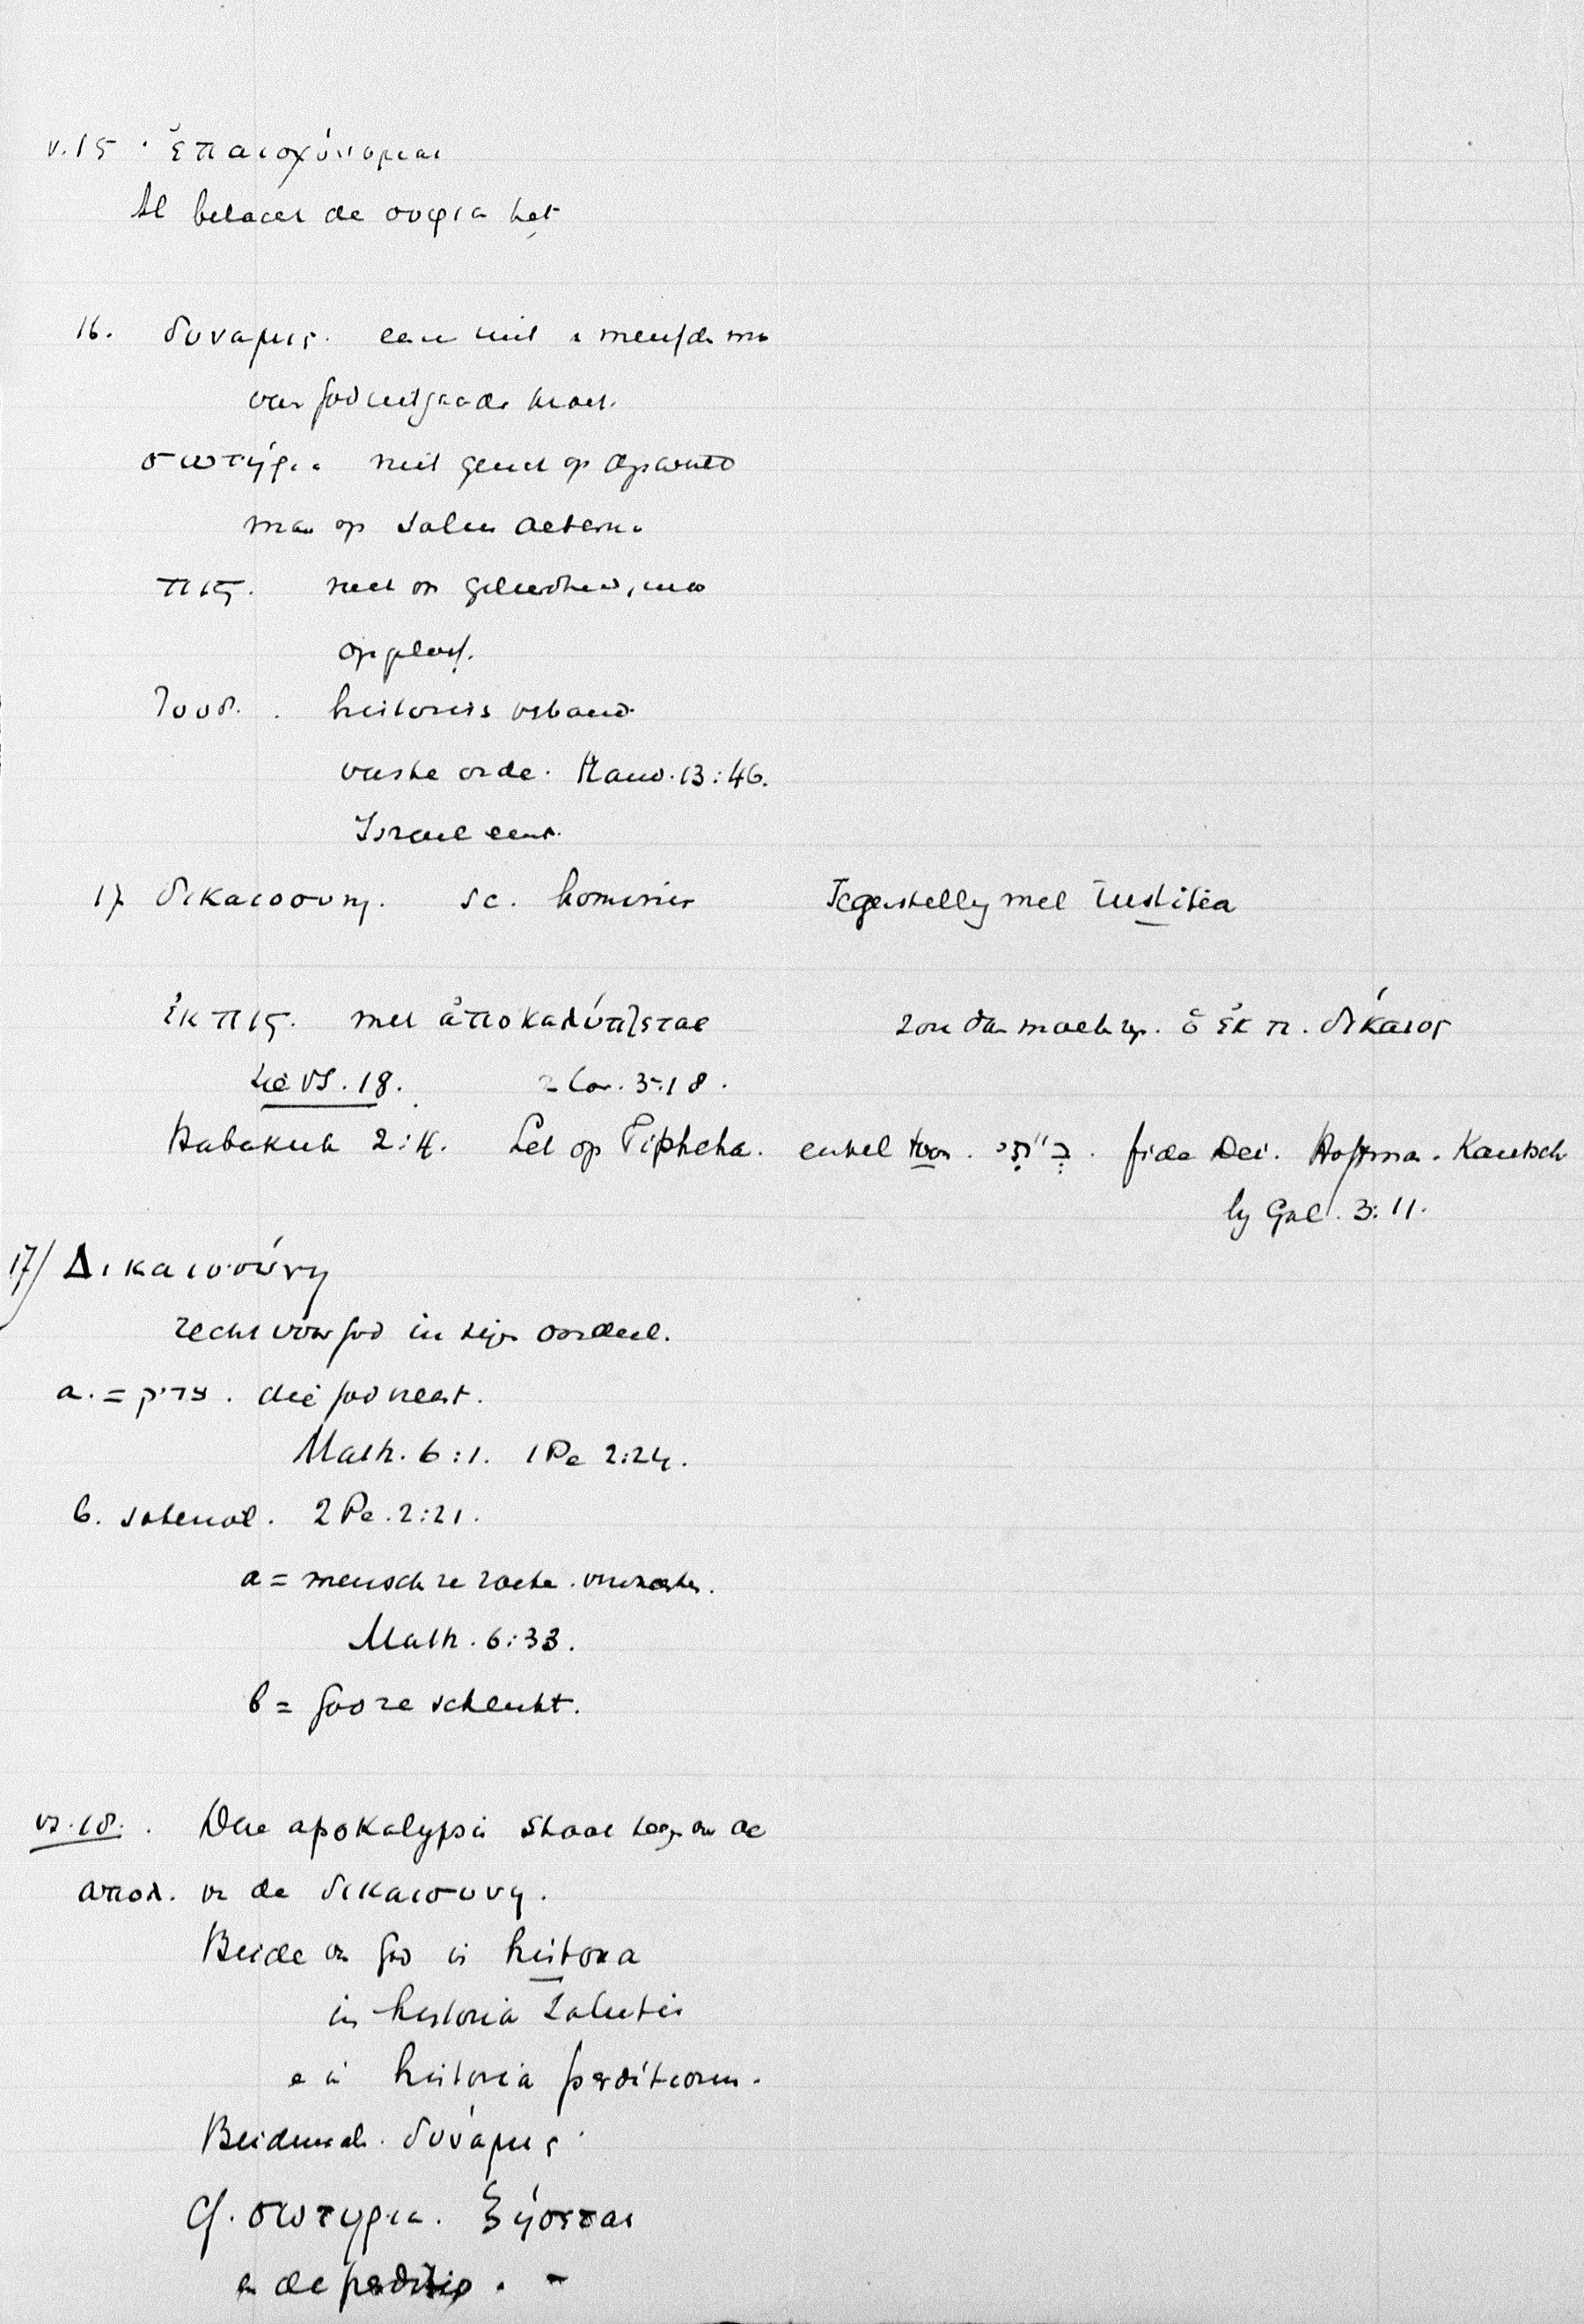 v.15 ἐπαισχύνομαι
Al belacht de σοφια het
16. δυναμις. een niet menschen maar
van God uitgaande kracht.
σωτήρια niet gericht op
maar op salus aeterna
πις. niet op geleerdheid, maar
op geloof.
Ἰουδ. historisch verband
vaste orde. Hand. 13:46.
Israel eerst.
17 δικαιοσυνη. sc. hominis Tegenstelling met iustitia
ἐκ πις. met ἀποκαλύπτεται zou dan moeten zijn. ὁ ἐκ π. δίκαιος
zie vs. 18. 2 Cor. 3:18.
Habakuk 2:4. Let op Tiphcha. enkel toon. fide Dei. Hofman. Kautsch
bij Gal. 3:11.
17/ Δικαιοσύνη
recht voor God in zijn oordeel.
a. = צדיק. die God neemt.
Math. 6:1. 1 Pe 2:24.
b. 2 Pe. 2:21.
a = mensch ze zoeke.
Math. 6:33.
b = God ze schenkt.
vs. 18. Deze apokalypsis staat tegen over de
αποκ. van de δικαιοσυνη.
Beide van God in historia
in historia salutis
en in historia perditionis.
Beidemaal. δυνάμις
Cf. σωτηρια. ζήσεται
en de perditio. -